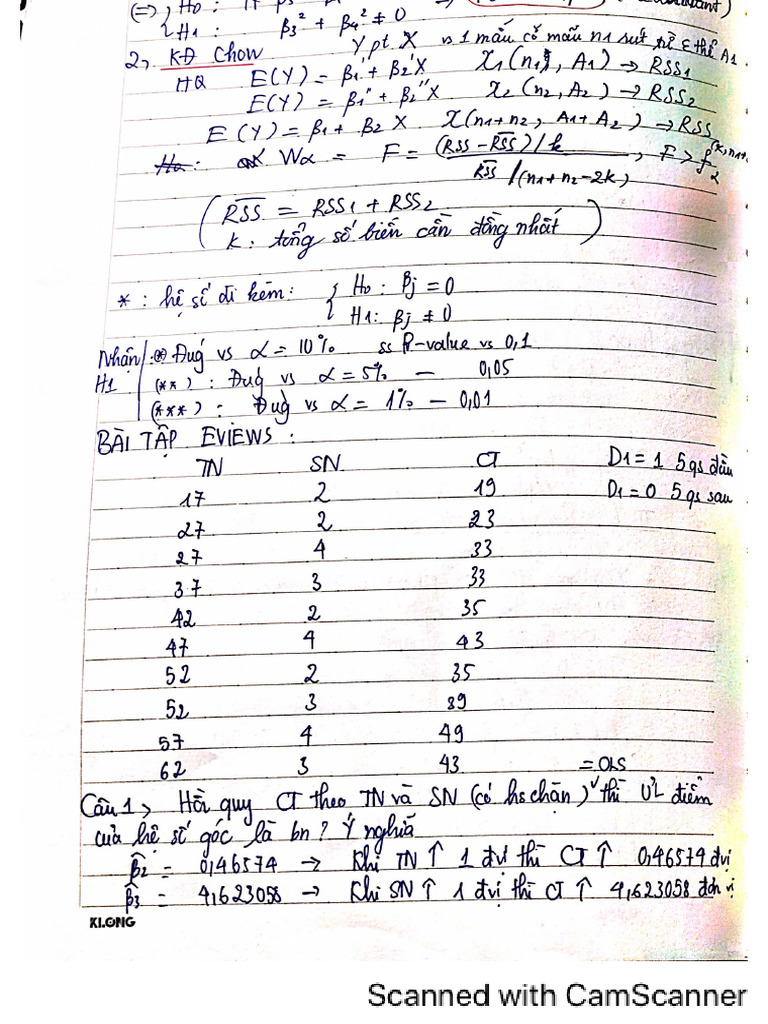 (=>) { H₀ :
H₁ : β₃² + β₄² ≠ 0
2, KĐ Chow Y pt X vs 1 mẫu có mẫu n1
HQ E(Y) = β₁' + β₂'X X₁(n₁, A₁) → RSS₁
E(Y) = β₁'' + β₂''X X₂(n₂, A₂) → RSS₂
E(Y) = β₁ + β₂ X X(n₁+n₂, A₁+A₂) → RSS
Wα = F = (RSS - R̅S̅S̅)/k / R̅S̅S̅/(n₁+n₂-2k) , F > f
( R̅S̅S̅ = RSS₁ + RSS₂
k : tổng số biến cần đồng nhất )
* : hệ số đi kèm : { H₀ : βj = 0
H₁ : βj ≠ 0
Nhận H₁ (*) Đug vs α = 10% ss P-value vs 0,1
(**) : Đug vs α = 5% — 0,05
(***) : Đug vs α = 1% — 0,01
BÀI TẬP EVIEWS :
TN SN CT D1 = 1 5 qs đầu
17 2 19 D1 = 0 5 qs sau
27 2 23
27 4 33
37 3 33
42 2 35
47 4 43
52 2 35
52 3 39
57 4 49
62 3 43 = OLS
Câu 1, Hồi quy CT theo TN và SN (có hs chặn) thì ƯL điểm
của hệ số góc là bn ? Ý nghĩa
β̂₂ = 0,46574 → Khi TN ↑ 1 đvị thì CT ↑ 0,46574 đvị
β̂₃ = 4,623058 → Khi SN ↑ 1 đvị thì CT ↑ 4,623058 đơn vị
KLONG
Scanned with CamScanner